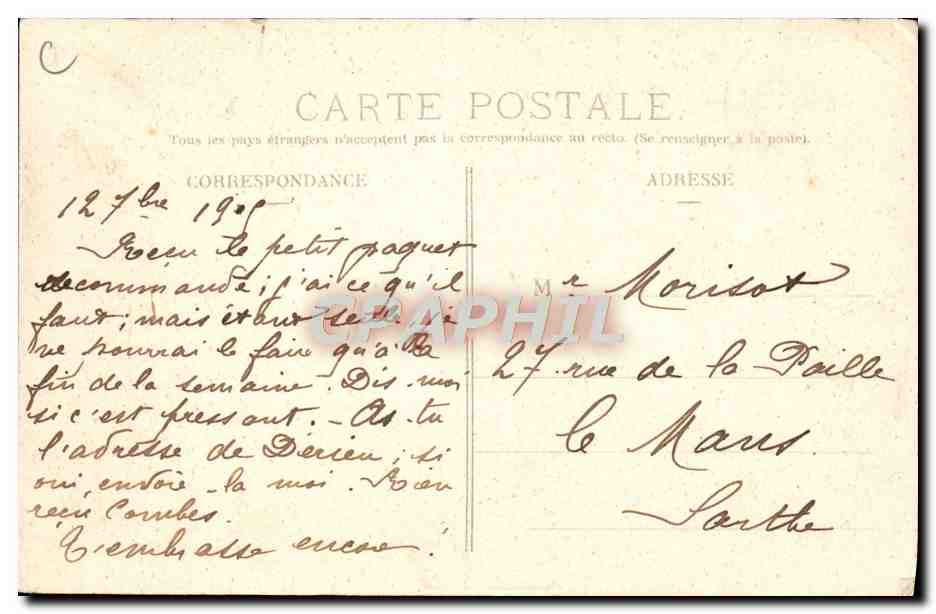 C
CARTE POSTALE
Tous les pays étrangers n'acceptent pas la correspondance au recto. (Se renseigner à la poste).
CORRESPONDANCE
12 7bre 1905
Reçu le petit paquet
recommandé ; j'ai ce qu'il
faut ; mais étant seule, je
ne pourrai le faire qu'à la
fin de la semaine. Dis-moi
si c'est pressant. - As-tu
l'adresse de Derien ; si
oui, envoie-la moi. Rien
reçu Combes.
T'embrasse encore.
ADRESSE
Mr Morisot
27 rue de la Paille
le Mans.
Sarthe
CPAPHIL